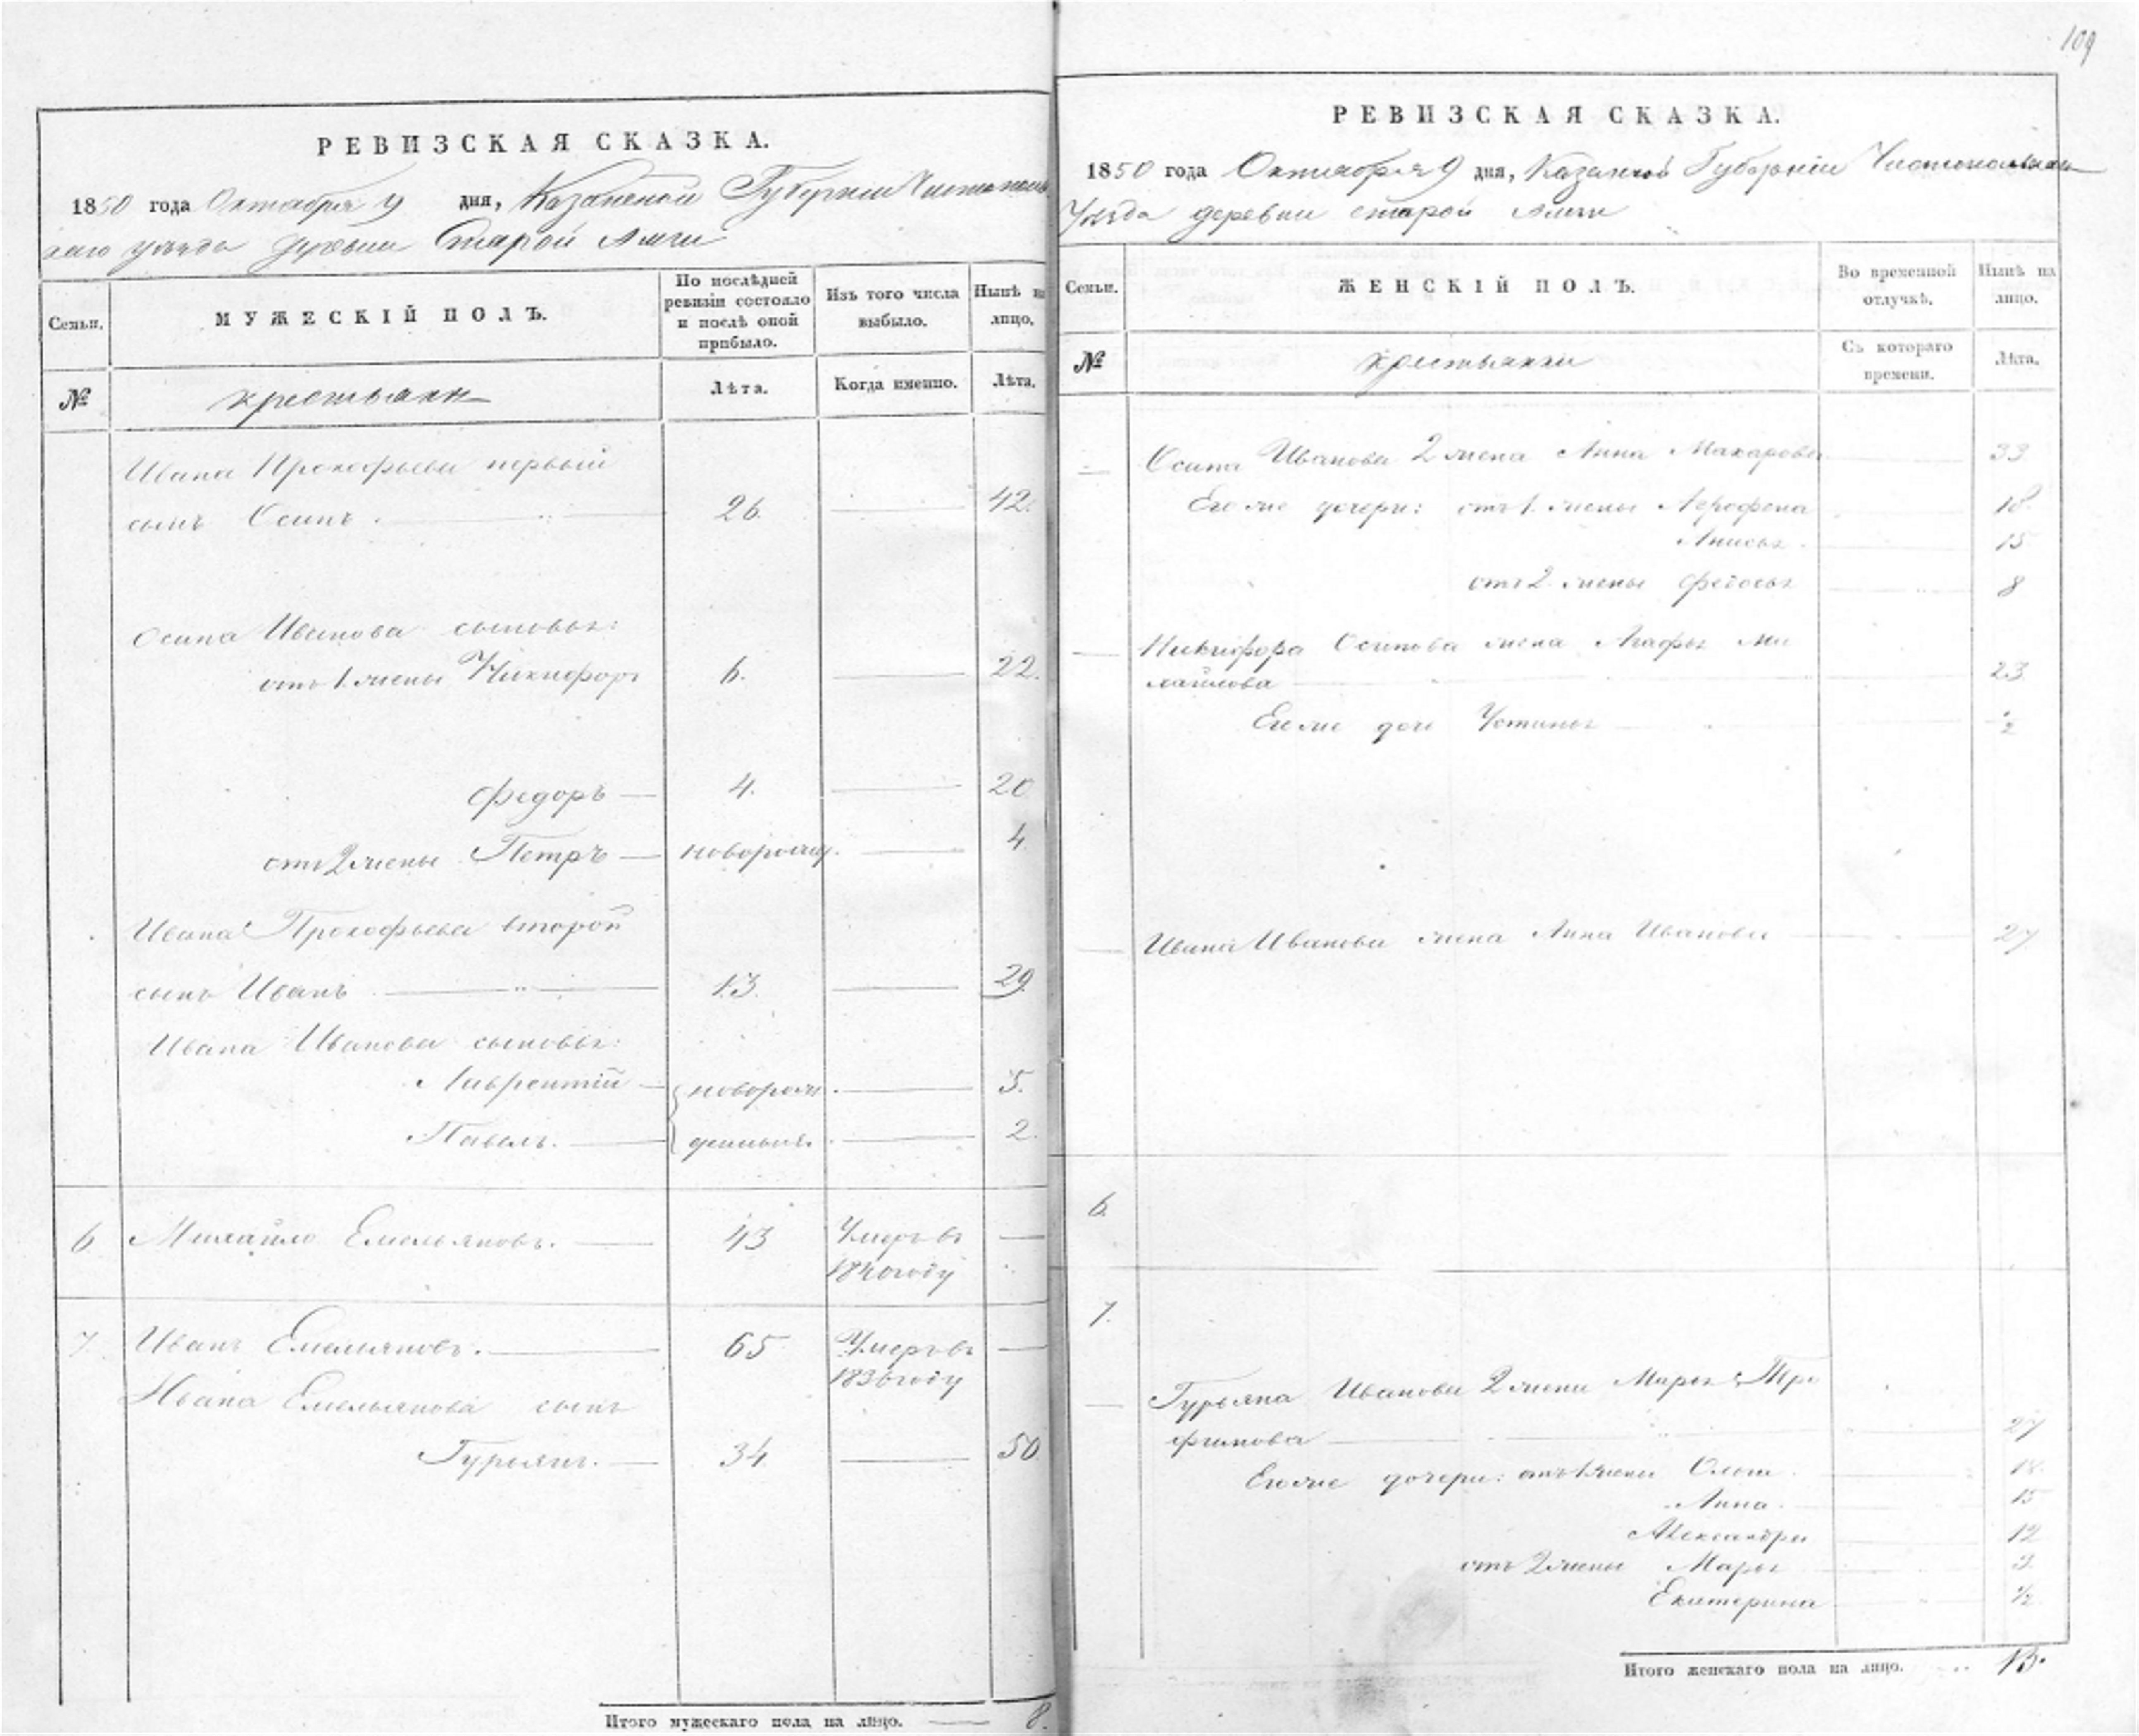 РЕВИЗСКАЯ СКАЗКА.
1850 года Октября 9 дня, Казанской Губернии Чистополь
скаго уезда деревни Старой Амзи
Семьи. МУЖЕСКІЙ ПОЛЪ. По послѣдней ревизіи состояло и послѣ оной прибыло. Изъ того числа выбыло. Нынѣ на лицо.
№ крестьяне Лѣта. Когда именно. Лѣта.
Ивана Прокофьева первый
сынъ Осипъ. 26. 42.
Осипа Иванова сыновья:
отъ 1. жены Никифоръ 6. 22.
Федоръ 4. 20
отъ 2 жены Петръ новорожд. 4
Ивана Прокофьева второй
сынъ Иванъ 13. 29.
Ивана Иванова сыновья:
Лаврентій новорож 5.
Павелъ. денныя. 2.
6 Михайло Емельяновъ. 43 Умеръ въ
1840 году
7 Иванъ Емельяновъ. 65 Умеръ въ
1836 году
Ивана Емельянова сынъ
Гурьянъ. 34 50
Итого мужескаго пола на лицо. 8.
109
РЕВИЗСКАЯ СКАЗКА.
1850 года Октября 9 дня, Казанской Губерніи Чистопольскаго
Уезда деревни старой Амзи
Семьи. ЖЕНСКІЙ ПОЛЪ. Во временной отлучкѣ. Нынѣ на лицо.
№ крестьянки Съ котораго времени. Лѣта.
Осипа Иванова 2 жена Анна Макарова 33
Его же дочери: отъ 1. жены Аерофена 18
Анисья. 15
отъ 2 жены Федосья 8
Никифора Осипова жена Агафья Ми
хайлова 23
Его же дочь Устинья ½
Ивана Иванова жена Анна Иванова 27
6.
7.
Гурьяна Иванова 2 жена Марья Тро
фимова 27
Его же дочери: отъ 1 жены Ольга 18
Анна. 15
Александра 12
отъ 2 жены Марья 3.
Екатерина ½
Итого женскаго пола на лицо. 13.